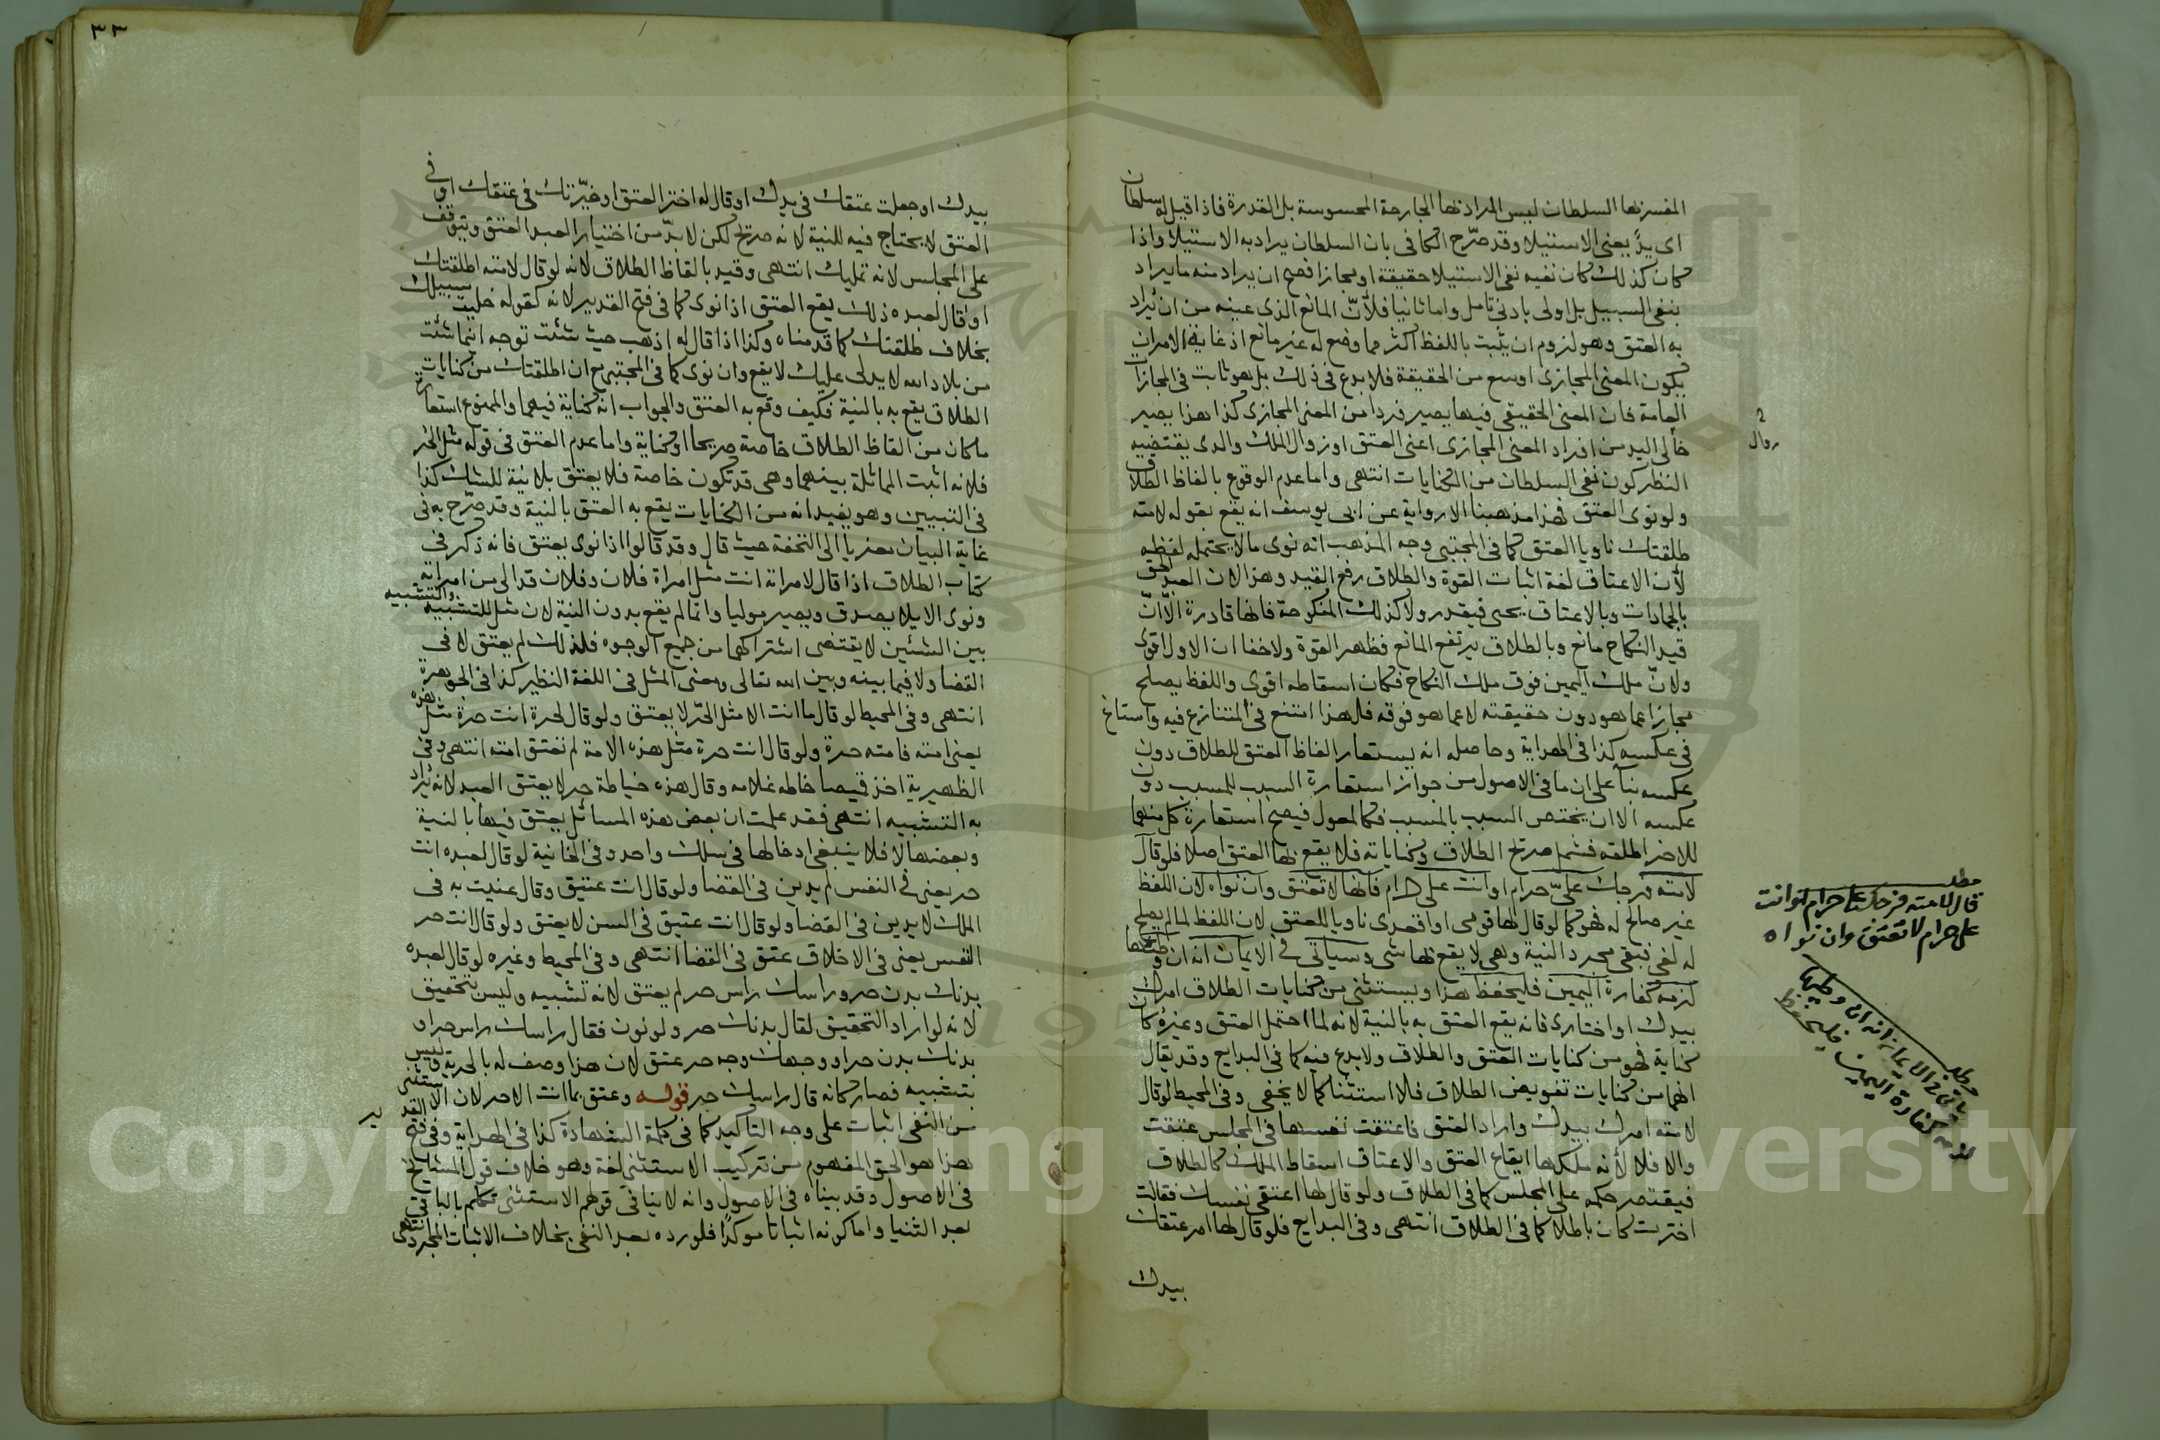 المفسر بها السلطان ليس المراد بها الجارحة المحسوسة بل القدرة فاذا قيل له سلطان
اى يد يعنى الاستيلا وقد صرح الكافى بان السلطان يراد به الاستيلا واذا
كان كذلك كان نفيه نفى الاستيلا حقيقة او مجازا فصح ان يراد منه ما يراد
بنفى السبيل بل اولى بادنى تامل واما ثانيا فلأنّ المانع الذى عينه من ان يُراد
به العتق وهو لزوم ان يثبت باللفظ اكثر مما وضع له غير مانع اذ غاية الامر ان
يكون المعنى المجازى اوسع من الحقيقة فلا بدع فى ذلك بل هو ثابت فى المجازات
العامة فان المعنى الحقيقى فيها يصير فردا من المعنى المجازى كذا هذا يصير
خالى اليد من افراد المعنى المجازى اعنى العتق او زوال الملك والذى يقتضيه
زوال
النظر كون نفى السلطان من الكنايات انتهى واما عدم الوقوع بالفاظ الطلاق
ولو نوى العتق فهذا مذهبنا الا رواية عن ابى يوسف انه يقع بقوله لامته
طلقتك ناويا العتق كما فى المجتبى وجه المذهب انه نوى ما لا يحتمله لفظه
لأن الاعتاق لغة اثبات القوة والطلاق رفع القيد وهذا لان العبد الحق
بالجمادات وبالاعتاق يحيى فيقدر ولا كذلك المنكوحة فانها قادرة الا انّ
قيد النكاح مانع وبالطلاق يرتفع المانع فظهر القوة ولا خفا ان الاول اقوى
ولانّ ملك اليمين فوق ملك النكاح فكان اسقاطه اقوى واللفظ يصلح
مجازا عما هو دون حقيقته لا عما هو فوقه فلهذا امتنع فى المتنازع فيه واستاغ
فى عكسه كذا فى الهداية وحاصله انه يستعار الفاظ العتق للطلاق دون
عكسه بنآ على ان ما فى الاصول من جواز استعارة السبب للمسبب دون
عكسه الا ان يختص السبب بالمسبب فكالمعلول فيصح استعارة كل منهما
للاخر اطلقه فشمل صريح الطلاق وكناياته فلا يقع بها العتق اصلا فلو قال
لامته فرجك علىّ حرام او انت على حرام فانها لا تعتق وان نواه لان اللفظ
غير صالح له فهو كما لو قال لها قومى او اقعدى ناويا للعتق لان اللفظ لما لم يصلح
له لغى فبقى مجرد النية وهى لا يقع بها شى وسياتى فى الايمان انه ان وطئها
لزمه كفارة اليمين فليحفظ هذا ويستثنى من كنايات الطلاق امرك
بيدك او اختارى فانه يقع العتق به بالنية لانه لما احتمل العتق وغيره كان
كناية فهو من كنايات العتق والطلاق ولا بدع فيه كما فى البدايع وقد يقال
انهما من كنايات تفويض الطلاق فلا استثنا كما لا يخفى وفى المحيط لو قال
لامته امرك بيدك واراد العتق فاعتقت نفسها فى المجلس عتقت
والا فلا لأنه ملكها ايقاع العتق والاعتاق اسقاط الملك كالطلاق
فيقتصر حكمه على المجلس كما فى الطلاق ولو قال لها اعتقى نفسك فقالت
اخترت كان باطلا كما فى الطلاق انتهى وفى البدايع فلو قال لها امر عتقك
بيدك
مطلب
قال لامته فرجك على حرام او انت
على حرام لا تعتق وان نواه
مطلب
ياتى فى الايمان انه ان وطئها
لزمه كفارة اليمين فليحفظ
٣٣
بيدك او جعلت عتقك فى يدك او قال له اختر العتق او خيّرتك فى عتقك او فى
العتق لا يحتاج فيه للنية لانه صريح لكن لا بدّ من اختيار العبد العتق ويتوقف
على المجلس لانه تمليك انتهى وقيد بالفاظ الطلاق لانه لو قال لامته اطلقتك
او قال لعبده ذلك يقع العتق اذا نوى كما فى فتح القدير لانه كقوله خليت سبيلك
بخلاف طلقتك كما قدمناه وكذا اذا قال له اذهب حيث شئت توجه اينما شئت
من بلاد الله لا يدلى عليك لا يقع وان نوى كما فى المجتبى مع ان اطلقتك من كنايات
الطلاق يقع به بالنية فكيف وقع به العتق والجواب انه كناية فيهما والممنوع استعارة
ما كان من الفاظ الطلاق خاصة صريحا او كناية واما عدم العتق فى قوله مثل الحر
فلانه اثبت المماثلة بينهما وهى قد تكون خاصة فلا يعتق بلا نية للشك كذا
فى التبيين وهو يفيد انه من الكنايات يقع به العتق بالنية وقد صرّح به فى
غاية البيان معزيا الى التحفة حيث قال وقد قالوا اذا نوى يعتق فانه ذكر فى
كتاب الطلاق اذا قال لامراته انت مثل امراة فلان وفلان قد الى من امراته
ونوى الايلا يصدق ويصير موليا وانما لم يقع بدون النية لان مثل للتشبيه والتشبيه
بين الشئين لا يقتضى اشتراكهما من جميع الوجوه فلذلك لم يعتق لا فى
القضا ولا فيما بينه وبين الله تعالى ومعنى المثل فى اللغة النظير كذا فى الجوهرة
انتهى وفى المحيط لو قال ما انت الا مثل الحرّ لا يعتق ولو قال لحرة انت حرة مثل هذه
يعنى امته فامته حرة ولو قال انت حرة مثل هذه الامة لم تعتق امته انتهى وفى
الظهيرية اخذ قميصا خاطه غلامه وقال هذه خياطة حر لا يعتق العبد لانه يُراد
به التشبيه انتهى فقد علمت ان بعض هذه المسائل يعتق فيها بالنية
وبعضها لا فلا ينبغى ادخالها فى سلك واحد وفى الخانية لو قال لعبده انت
حر يعنى فى النفس لم يدين فى القضا ولو قال انت عتيق وقال عنيت به فى
الملك لا يدين فى القضا ولو قال انت عتيق فى السن لا يعتق ولو قال انت حر
النفس يعنى فى الاخلاق عتق فى القضا انتهى وفى المحيط وغيره لو قال لعبده
بدنك بدن حر وراسك راس حر لم يعتق لانه تشبيه وليس بتحقيق
لانه لو اراد التحقيق لقال بدنك حر ولو نون فقال راسك راس حر او
بدنك بدن حر او وجهك وجه حر عتق لان هذا وصف له بالحرية وليس
بتشبيه فصار كانه قال راسك حر قوله وعتق بما انت الا حر لان الاستثنى
من النفى اثبات على وجه التاكيد كما فى كلمة الشهادة كذا فى الهداية وفى فتح القدير
هذا هو الحق المفهوم من تركيب الاستثنى لغة وهو خلاف قول المشايخ
فى الاصول وقد بيناه فى الاصول وانه لا ينافى قولهم الاستثنى تكلم بالباقى
بعد الثنيا واما كونه اثباتا موكدًا فلورده بعد النفى بخلاف الاثبات المجرد انتهى